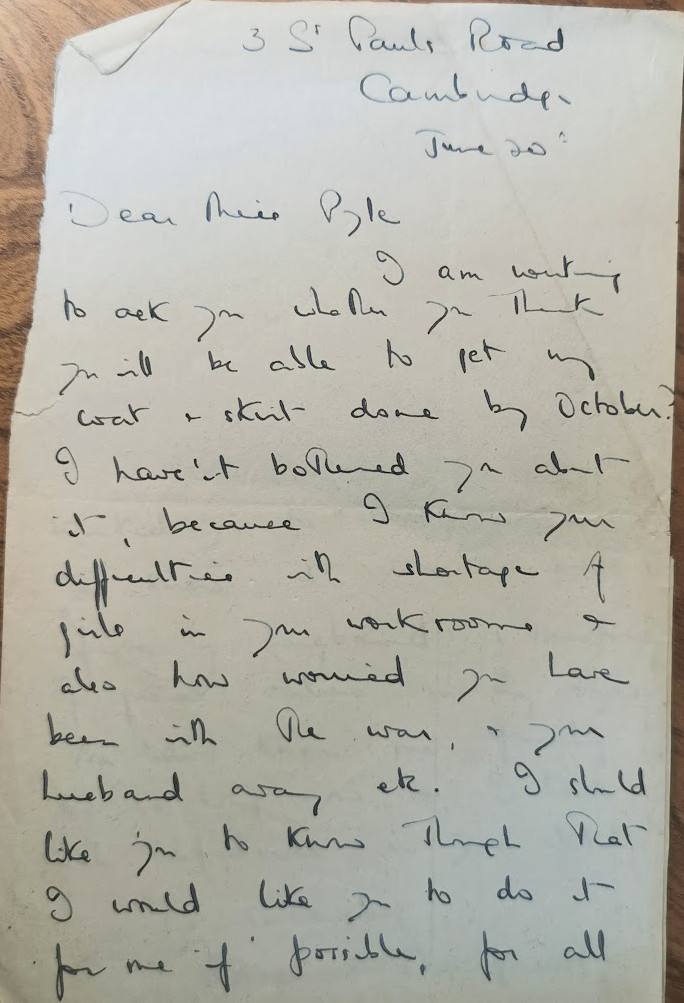 3 St Pauls Road
Cambridge
June 20th
Dear Miss Pyle
I am writing
to ask you whether you think
you will be able to get my
coat & skirt done by October?
I have'nt bothered you about
it, because I know your
difficulties with shortage of
girls in your workrooms &
also how worried you have
been with the war, & your
husband away etc. I should
like you to know though that
I would like you to do it
for me if possible, for all